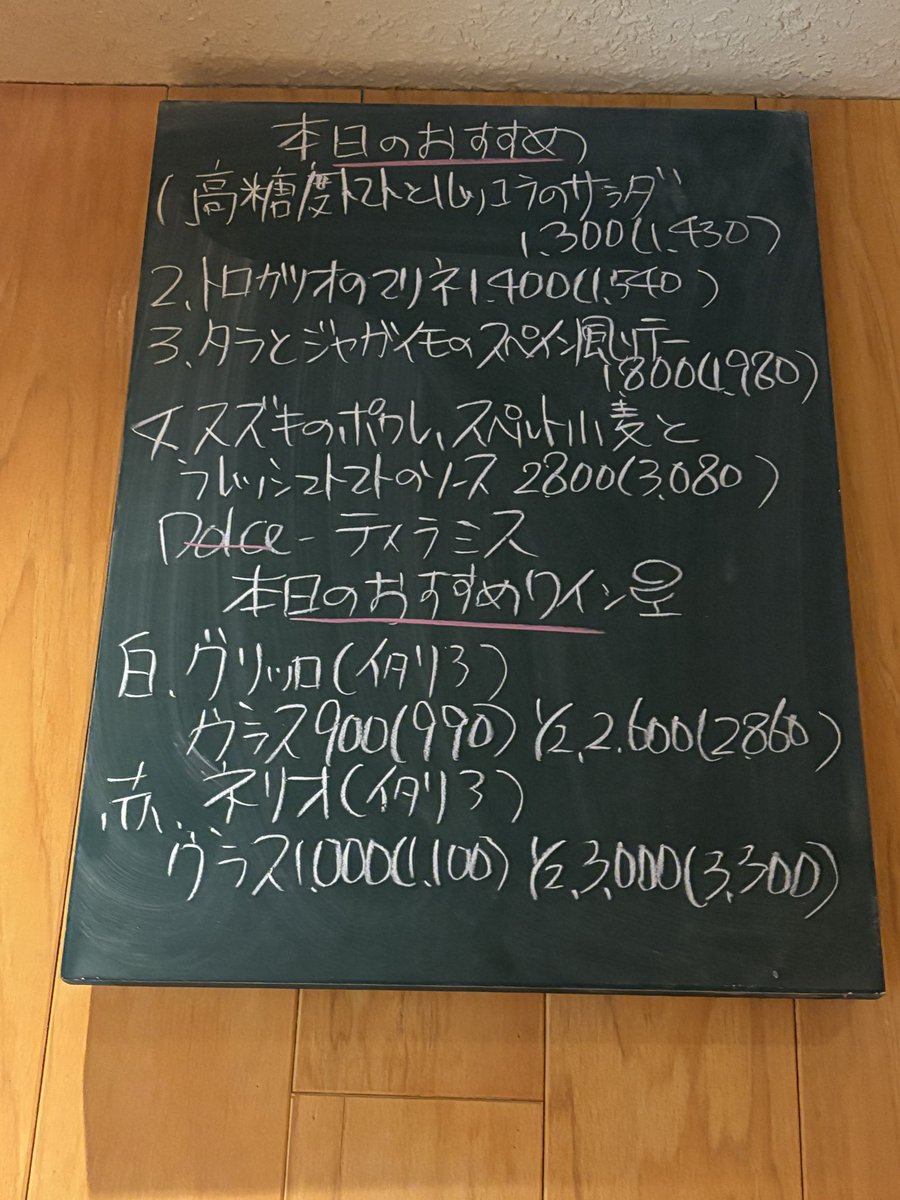 本日のおすすめ
1 高糖度トマトとルッコラのサラダ
1,300(1,430)
2、トロガツオのマリネ 1,400(1,540)
3、タラとジャガイモのスペイン風
1,800(1,980)
4、スズキのポワレ、スペルト小麦と
フレッシュトマトのソース 2800(3,080)
Dolce - ティラミス
本日のおすすめワイン
白、グリッロ(イタリア)
グラス900(990) 1/2,2.600(2860)
赤、ネリオ(イタリア)
グラス1.000(1,100) 1/2,3,000(3,300)